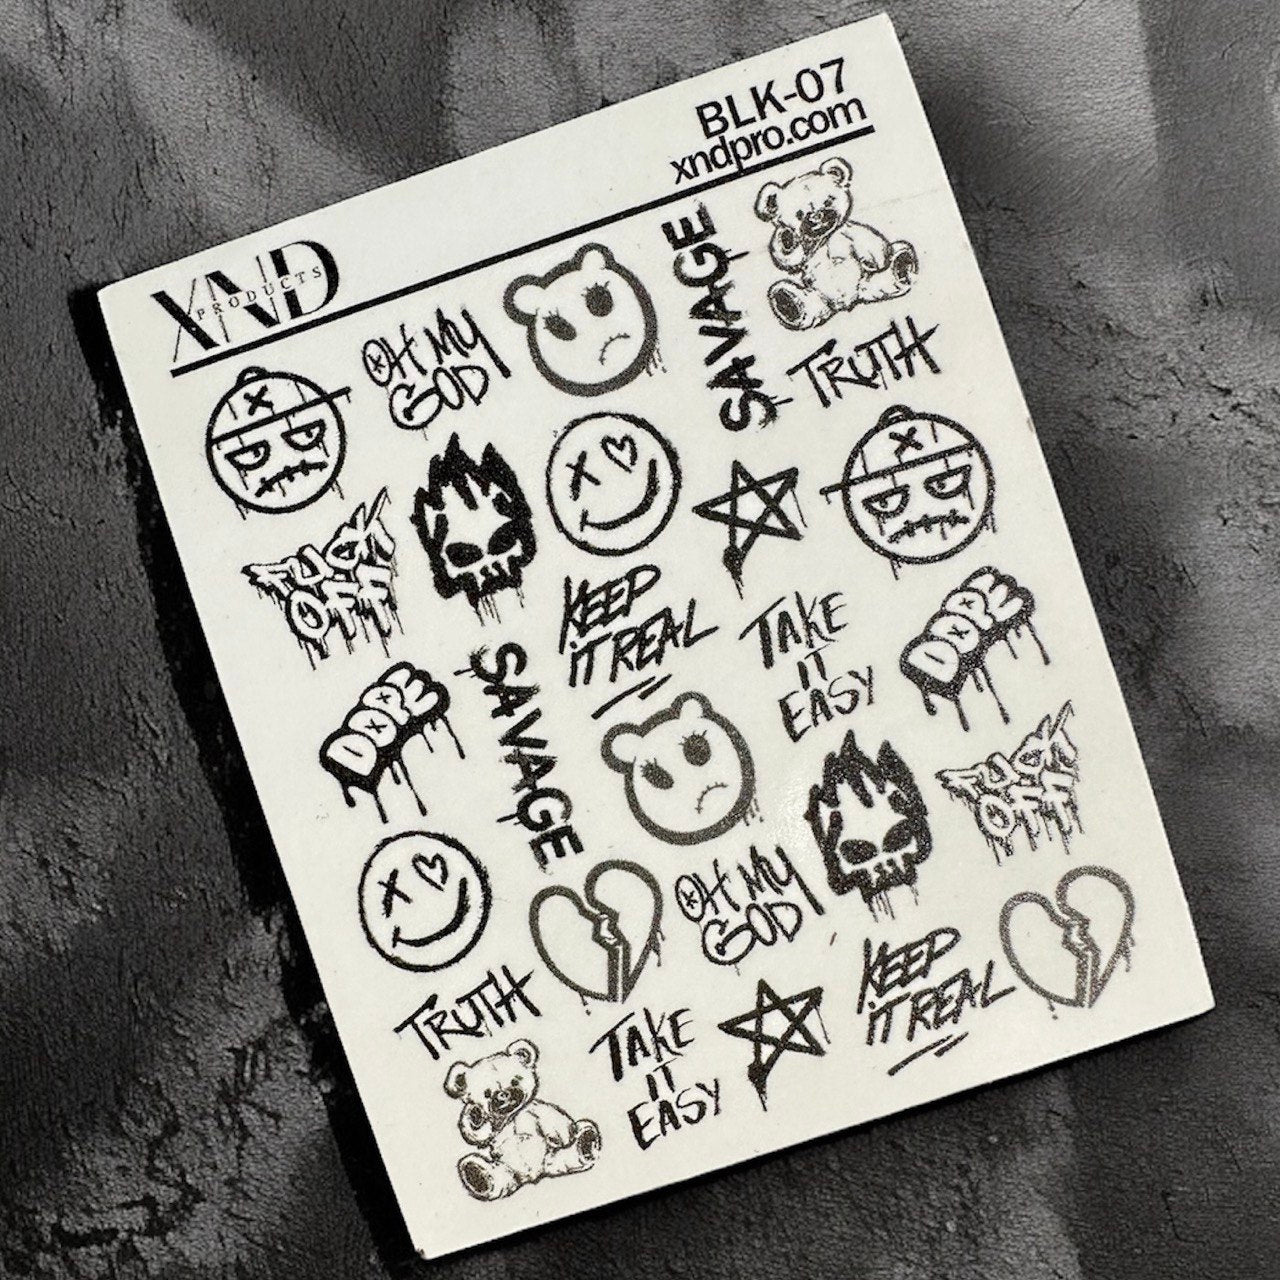 BLK-07
xndpro.com
XND
PRODUCTS
SAVAGE
OH MY
GOD
TRUTH
FUCK
OFF
KEEP
IT REAL
TAKE
IT
EASY
DOPE
DOPE
SAVAGE
FUCK
OFF
OH MY
GOD
KEEP
IT REAL
TRUTH
TAKE
IT
EASY